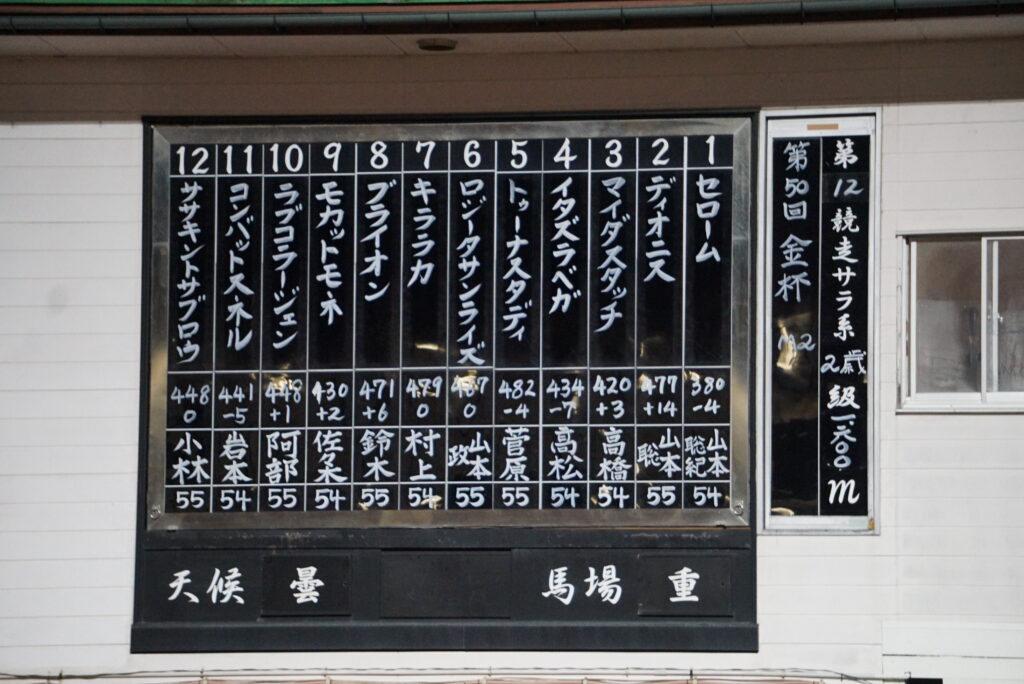 第12競走サラ系2歳級一、六〇〇m
第50回 金杯 M2
1 セローム 380 -4 山本聡紀 54
2 ディオニス 477 +14 山本聡 55
3 マイダスタッチ 420 +3 高橋 54
4 イタズラベガ 434 -7 高松 54
5 トゥーナスタディ 482 -4 菅原 55
6 ロジータサンライズ 0 山本政 55
7 キララカ 479 0 村上 54
8 ブライオン 471 +6 鈴木 55
9 モカットモネ 430 +2 佐々木 54
10 ラブコラージェン 448 +1 阿部 55
11 コンバットスネル 441 -5 岩本 54
12 ササキントサブロウ 448 0 小林 55
天候 曇 馬場 重